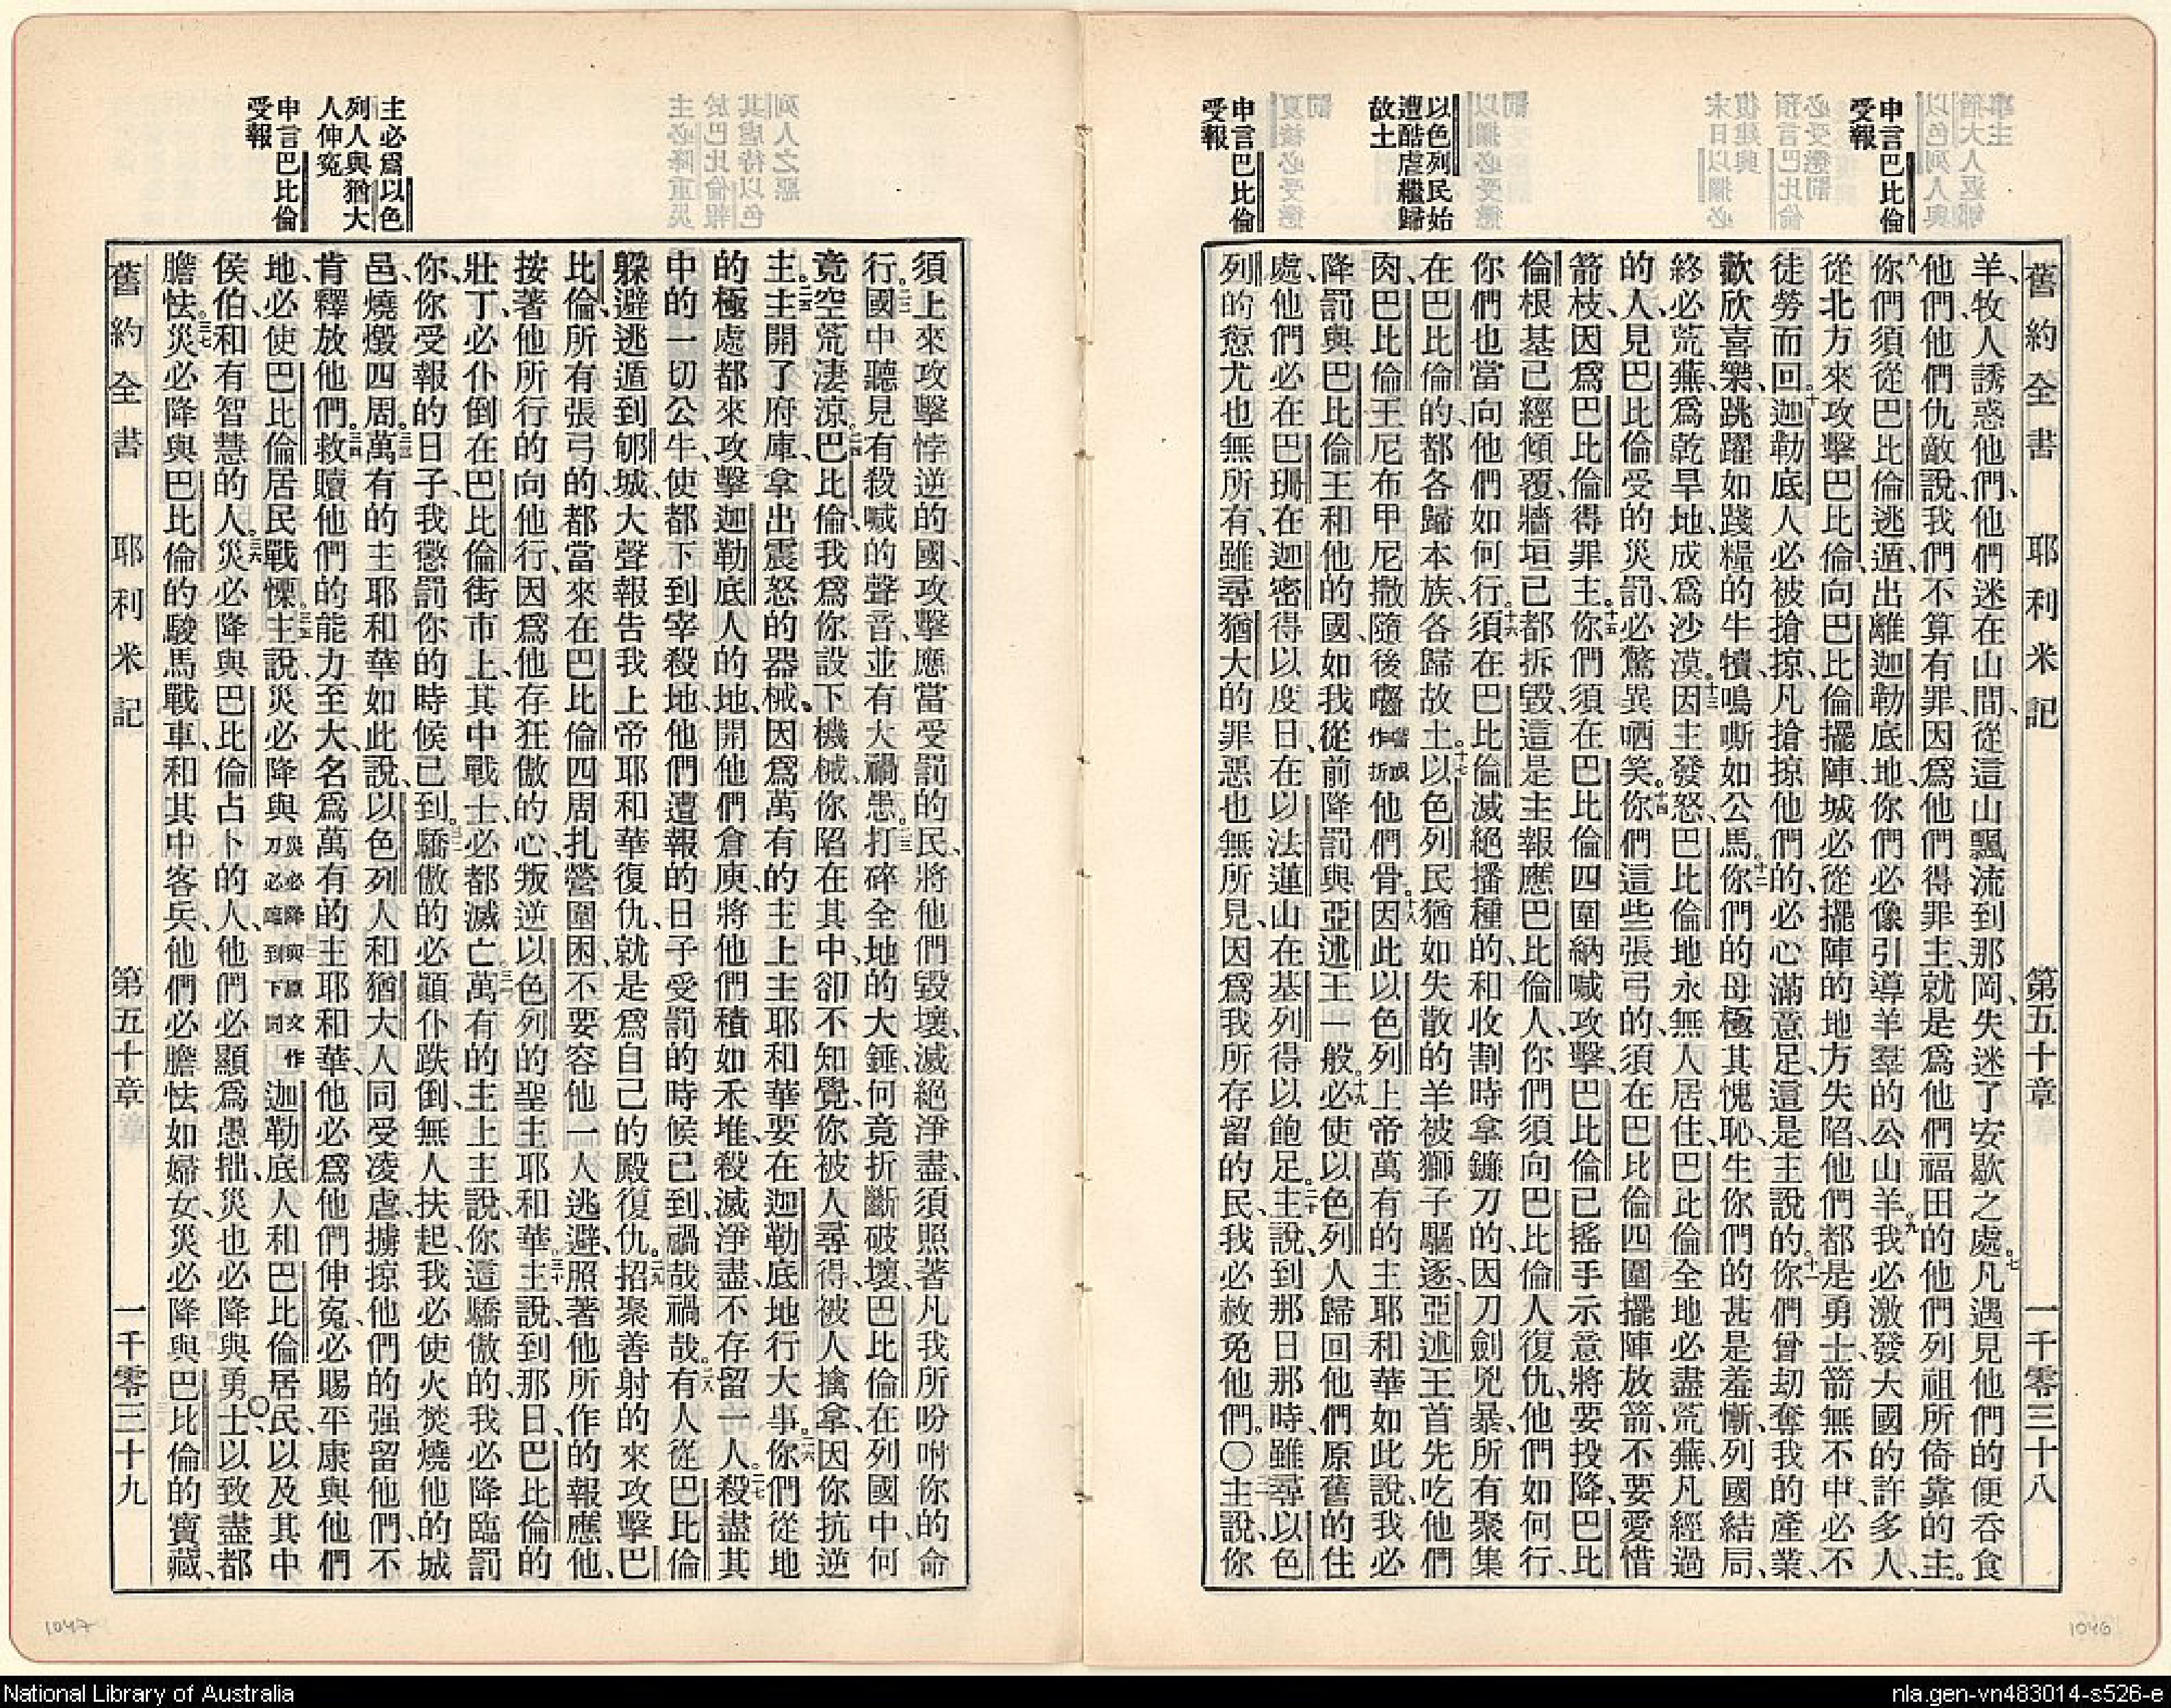 申言巴比倫
受報
以色列民始
遭酷虐繼歸
故土
申言巴比倫
受報
舊約全書 耶利米記 第五十章 一千零三十八
羊、牧人誘惑他們、他們迷在山間、從這山飄流到那岡、失迷了安歇之處。七凡遇見他們的便吞食
他們、他們仇敵說、我們不算有罪、因爲他們得罪主、就是爲他們福田的、他們列祖所倚靠的主。
八你們須從巴比倫逃遁、出離迦勒底地、你們必像引導羊羣的公山羊。九我必激發大國的許多人、
從北方來攻擊巴比倫、向巴比倫擺陣、城必從擺陣的地方失陷、他們都是勇士、箭無不中、必不
徒勞而回。十迦勒底人必被搶掠、凡搶掠他們的、必心滿意足、這是主說的。十一你們曾刧奪我的產業、
歡欣喜樂、跳躍如踐糧的牛犢、鳴嘶如公馬。十二你們的母極其愧恥、生你們的甚是羞慚、列國結局、
終必荒蕪、爲乾旱地、成爲沙漠。十三因主發怒、巴比倫地永無人居住、巴比倫全地必盡荒蕪、凡經過
的人、見巴比倫受的災罰、必驚異哂笑。十四你們這些張弓的、須在巴比倫四圍擺陣放箭、不要愛惜
箭枝、因爲巴比倫得罪主。十五你們須在巴比倫四圍納喊攻擊、巴比倫已搖手示意將要投降、巴比
倫根基已經傾覆、牆垣已都拆毀、這是主報應巴比倫人、你們須向巴比倫人復仇、他們如何行、
你們也當向他們如何行。十六須在巴比倫滅絕播種的、和收割時拿鐮刀的、因刀劍兇暴、所有聚集
在巴比倫的、都各歸本族、各歸故土。十七以色列民猶如失散的羊、被獅子驅逐、亞述王首先吃他們
肉、巴比倫王尼布甲尼撒隨後嚙嚙或作折他們骨。十八因此以色列上帝萬有的主耶和華如此說、我必
降罰與巴比倫王和他的國、如我從前降罰與亞述王一般。十九必使以色列人歸回他們原舊的住
處、他們必在巴珊在迦密得以度日、在以法蓮山在基列得以飽足。二十主說、到那日那時、雖尋以色
列的愆尤也無所有、雖尋猶大的罪惡也無所見、因爲我所存留的民、我必赦免他們。〇二一主說、你
主必爲以色
列人與猶大
人伸寃
申言巴比倫
受報
須上來攻擊悖逆的國、攻擊應當受罰的民、將他們毀壞、滅絕淨盡、須照著凡我所吩咐你的命
行。二二國中聽見有殺喊的聲音、並有大禍患。二三打碎全地的大錘、何竟折斷破壞、巴比倫在列國中、何
竟空荒淒涼。二四巴比倫、我爲你設下機械、你陷在其中、卻不知覺、你被人尋得、被人擒拿、因你抗逆
主。二五主開了府庫、拿出震怒的器械、因爲萬有的主上主耶和華要在迦勒底地行大事。二六你們從地
的極處都來攻擊迦勒底人的地、開他們倉庾、將他們積如禾堆、殺滅淨盡、不存留一人。二七殺盡其
中的一切公牛、使都下到宰殺地、他們遭報的日子受罰的時候已到、禍哉禍哉。二八有人從巴比倫
躲避、逃遁到郇城、大聲報告我上帝耶和華復仇、就是爲自己的殿復仇。二九招聚善射的來攻擊巴
比倫、所有張弓的、都當來在巴比倫四周扎營圍困、不要容他一人逃避、照著他所作的報應他、
按著他所行的向他行、因爲他存狂傲的心、叛逆以色列的聖主耶和華。三十主說、到那日、巴比倫的
壯丁、必仆倒在巴比倫街市上、其中戰士、必都滅亡。三一萬有的主上主說、你這驕傲的、我必降臨罰
你、你受報的日子、我懲罰你的時候已到。三二驕傲的必顚仆跌倒、無人扶起、我必使火焚燒他的城
邑、燒燬四周。三三萬有的主耶和華如此說、以色列人和猶大人同受凌虐、擄掠他們的强留他們、不
肯釋放他們。三四救贖他們的能力至大、名爲萬有的主耶和華、他必爲他們伸寃、必賜平康與他們
地、必使巴比倫居民戰慄。三五主說、災必降與災必降與原文作刀必臨到下同迦勒底人和巴比倫居民、以及其中
侯伯、和有智慧的人。三六災必降與巴比倫占卜的人、他們必顯爲愚拙、災也必降與勇士、以致盡都
膽怯。三七災必降與巴比倫的駿馬戰車、和其中客兵、他們必膽怯如婦女、災必降與巴比倫的寶藏、
舊約全書 耶利米記 第五十章 一千零三十九
1047
1046
National Library of Australia
nla.gen-vn483014-s526-e